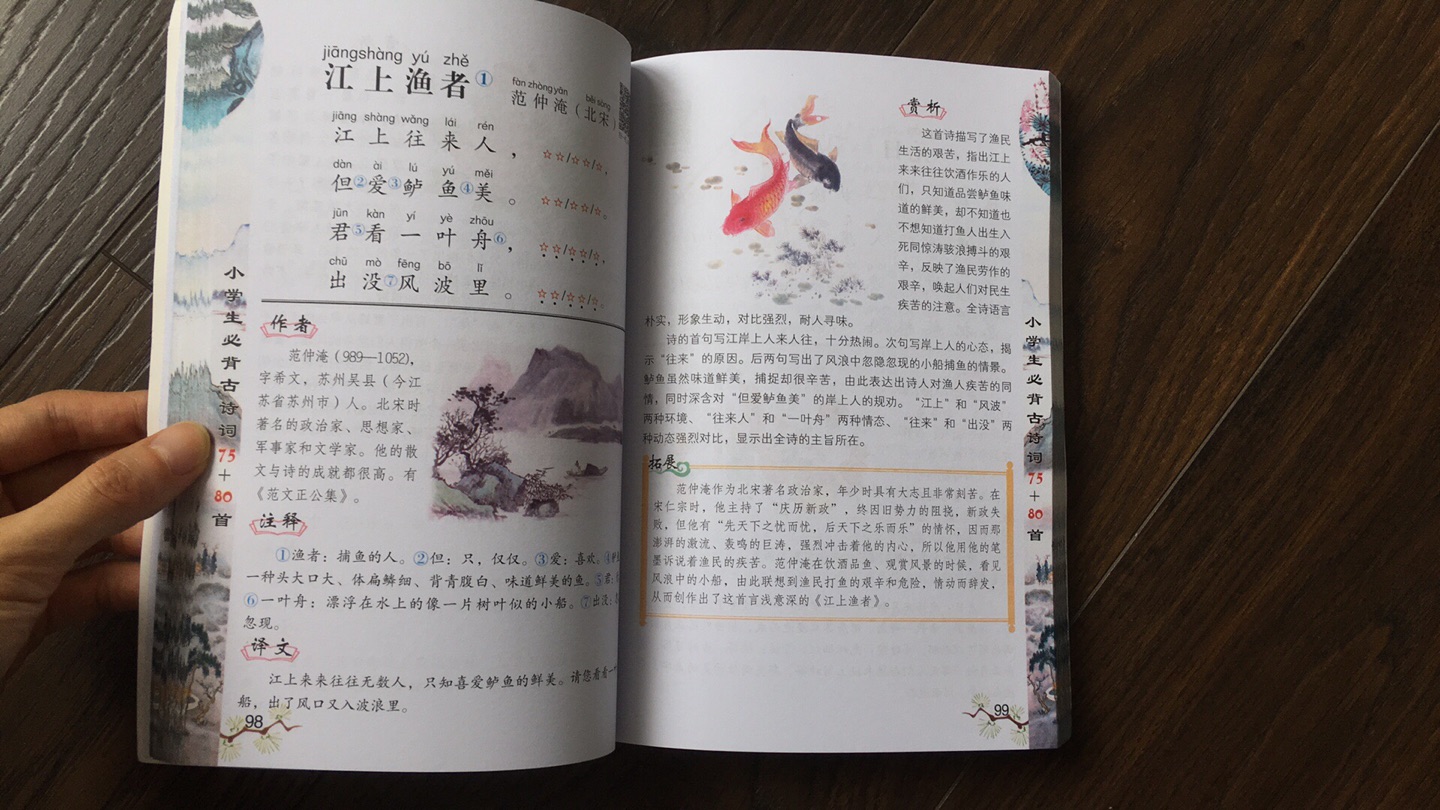 jiāngshàng yú zhě
江上渔者①
fàn zhòng yān běi sòng
范仲淹（北宋）
jiāng shàng wǎng lái rén
江上往来人，☆☆/☆☆/☆。
dàn ài lú yú měi
但②爱③鲈鱼④美。☆☆/☆☆/☆。
jūn kàn yí yè zhōu
君⑤看一叶舟⑥，☆☆/☆☆/☆，
chū mò fēng bō lǐ
出没⑦风波里。☆☆/☆☆/☆。
作者
范仲淹（989—1052），
字希文，苏州吴县（今江
苏省苏州市）人。北宋时
著名的政治家、思想家、
军事家和文学家。他的散
文与诗的成就都很高。有
《范文正公集》。
注释
①渔者：捕鱼的人。②但：只，仅仅。③爱：喜欢。④
一种头大口大、体扁鳞细、背青腹白、味道鲜美的鱼。⑤君：
⑥一叶舟：漂浮在水上的像一片树叶似的小船。⑦出没：
忽现。
译文
江上来来往往无数人，只知喜爱鲈鱼的鲜美。请您看看一
船，出了风口又入波浪里。
98
小学生必背古诗词75+80首
赏析
这首诗描写了渔民
生活的艰苦，指出江上
来来往往饮酒作乐的人
们，只知道品尝鲈鱼味
道的鲜美，却不知道也
不想知道打鱼人出生入
死同惊涛骇浪搏斗的艰
辛，反映了渔民劳作的
艰辛，唤起人们对民生
疾苦的注意。全诗语言
朴实，形象生动，对比强烈，耐人寻味。
诗的首句写江岸上人来人往，十分热闹。次句写岸上人的心态，揭
示“往来”的原因。后两句写出了风浪中忽隐忽现的小船捕鱼的情景。
鲈鱼虽然味道鲜美，捕捉却很辛苦，由此表达出诗人对渔人疾苦的同
情，同时深含对“但爱鲈鱼美”的岸上人的规劝。“江上”和“风波”
两种环境、“往来人”和“一叶舟”两种情态、“往来”和“出没”两
种动态强烈对比，显示出全诗的主旨所在。
拓展
范仲淹作为北宋著名政治家，年少时具有大志且非常刻苦。在
宋仁宗时，他主持了“庆历新政”，终因旧势力的阻挠，新政失
败，但他有“先天下之忧而忧，后天下之乐而乐”的情怀，因而那
澎湃的激流、轰鸣的巨涛，强烈冲击着他的内心，所以他用他的笔
墨诉说着渔民的疾苦。范仲淹在饮酒品鱼、观赏风景的时候，看见
风浪中的小船，由此联想到渔民打鱼的艰辛和危险，情动而辞发，
从而创作出了这首言浅意深的《江上渔者》。
小学生必背古诗词75+80首
99